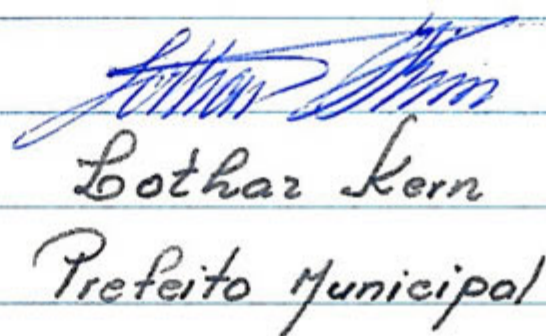 Lothar Kern
Lothar Kern
Prefeito Municipal